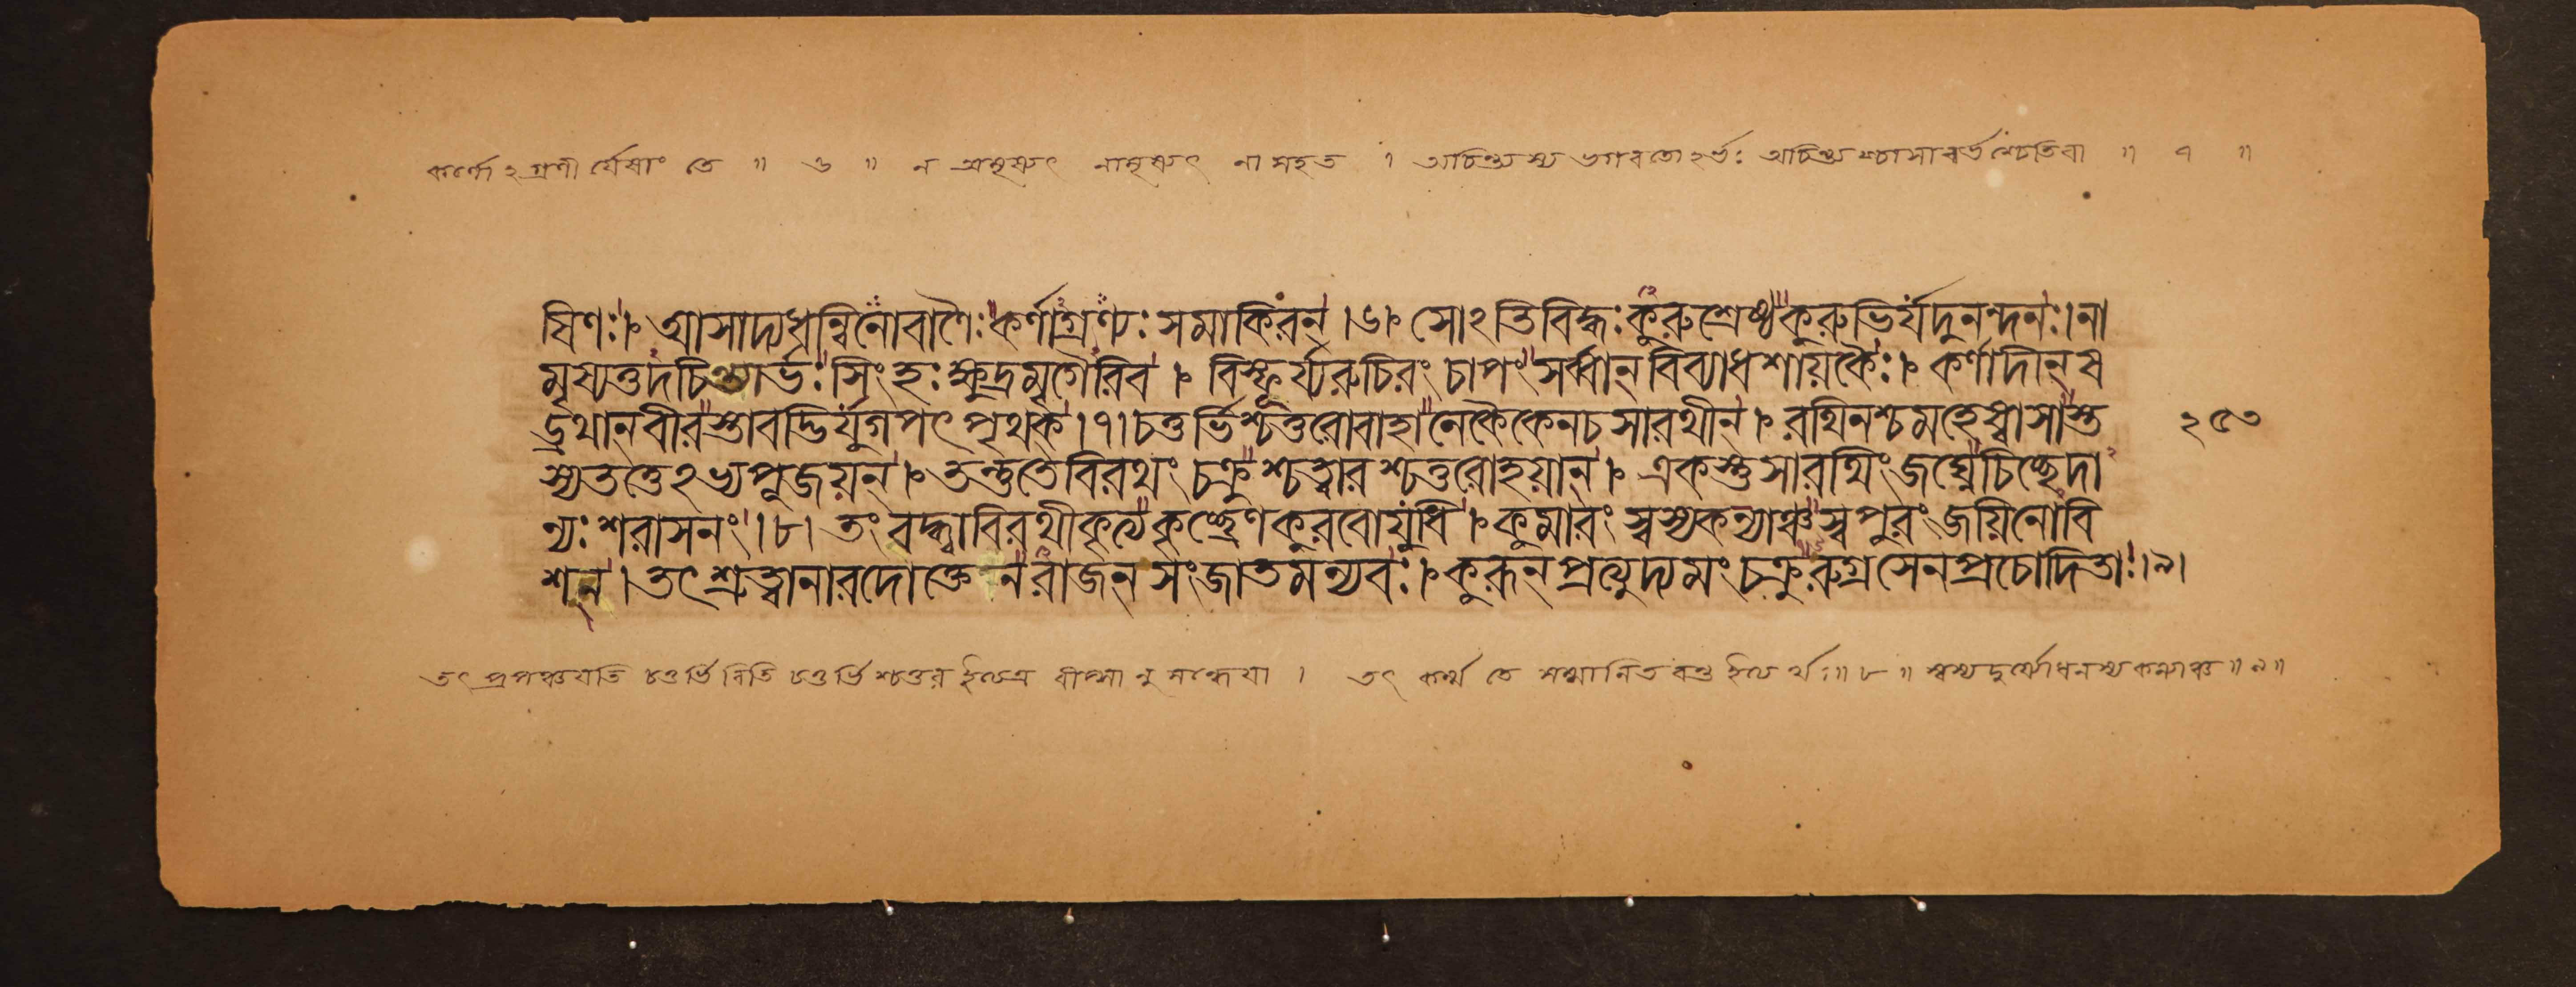 কর্ণোঽগ্রণী র্যেষাং তে ॥ ৬ ॥ ন অমৃষ্যৎ নামৃষ্যৎ নাসহত । অচিন্ত্যস্য ভগবতোঽর্ভঃ অচিন্ত্যশ্চাসাবর্ভশ্চেতিবা ॥ ৭ ॥
ষিণঃ। আসাদ্যধন্বিনোবাণৈঃকর্ণাগ্রণ্যঃসমাকিরন্।৬। সোঽতিবিদ্ধঃকুরুশ্রেষ্ঠকুরুভির্যদুনন্দনঃ।না
মৃষ্যত্তদচিন্ত্যার্ভঃসিংহঃক্ষুদ্রমৃগৈরিব । বিস্ফূর্য্যরুচিরং চাপংসর্ব্বান্ বিব্যাধশায়কৈঃ। কর্ণাদীন্ ষ
ড্রথান্ বীরস্তাবদ্ভির্যুগপৎ পৃথক্।৭।চতুর্ভিশ্চতুরোবাহানেকৈকেনচসারথীন্। রথিনশ্চমহেষ্বাসাস্ত
২৫৩
স্যতত্তেঽভ্যপূজয়ন্। তন্তুতেবিরথং চক্রুশ্চত্বারশ্চতুরোহয়ান্। একস্তুসারথিংজঘ্নেচিচ্ছেদা
ন্যঃশরাসনং।৮। তং বদ্ধ্বাবিরথীকৃত্যকৃচ্ছ্রেণকুরবোযুধি । কুমারং স্বস্যকন্যাঞ্চস্বপুরংজয়িনোবি
শন্ । তৎশ্রুত্বানারদোক্তেনরাজন্ সংজাতমন্যবঃ।কুরূন্ প্রত্যুদ্যমং চক্রুরুগ্রসেনপ্রচোদিতাঃ।৯।
তৎ প্রপঞ্চয়তি চতুর্ভিরিতি চতুর্ভিশ্চতুর ইত্যত্র বীপ্সানুসন্ধেয়া । তৎ কর্ম্ম তে সম্মানিতবন্ত ইত্যর্থঃ॥৮॥ স্বস্যদুর্য্যোধনস্যকন্যাঞ্চ॥৯॥